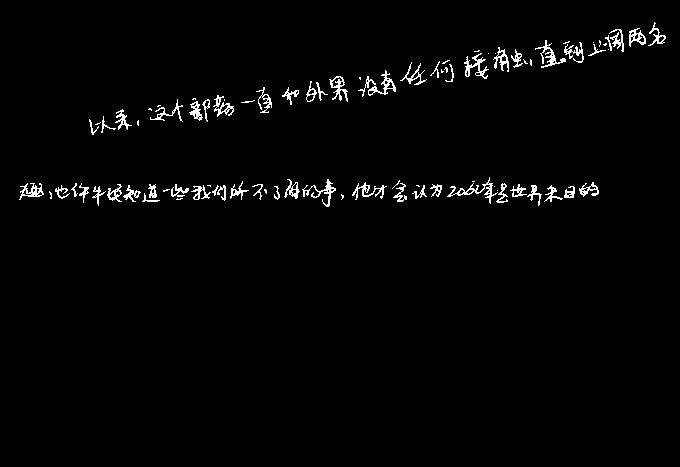 以来,这个部落一直和外界没有任何接触,直到上周两名
趣,也许牛顿知道一些我们所不了解的事,他才会认为2060年是世界末日的